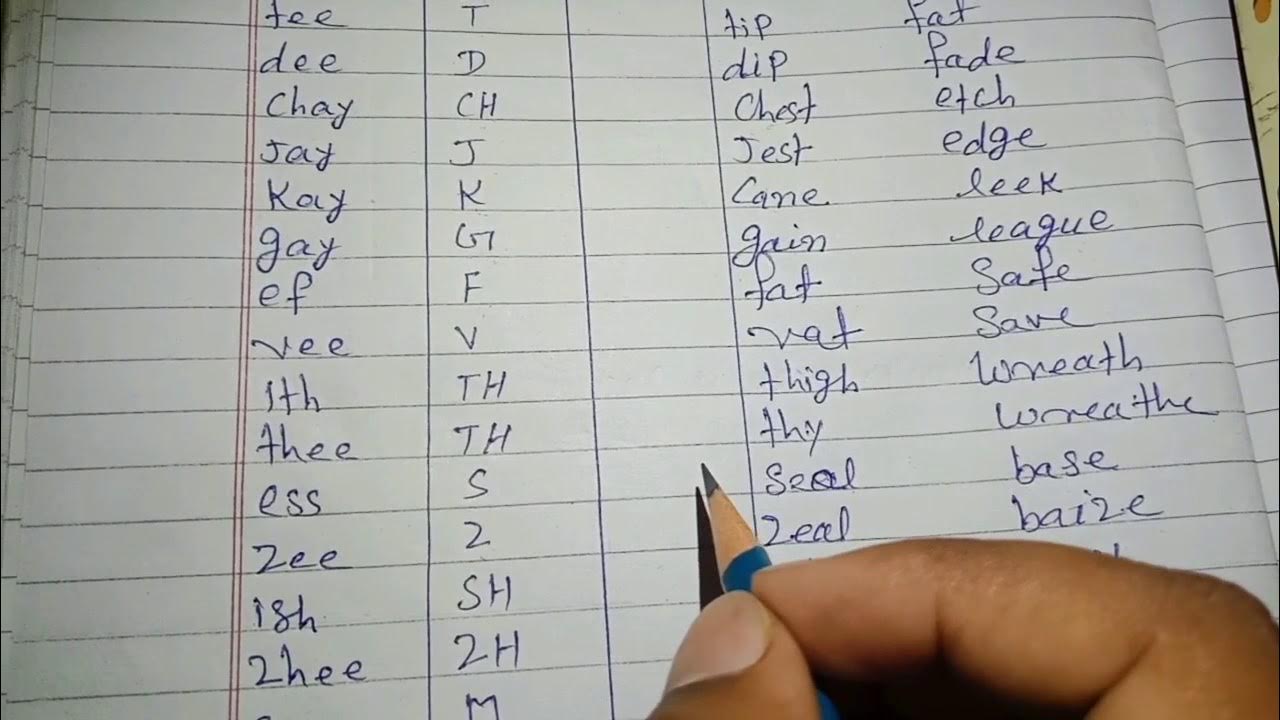 tee T tip fat
dee D dip fade
Chay CH Chest etch
Jay J Jest edge
Kay K Cane leek
gay G gain league
ef F fat Safe
vee V vat Save
ith TH thigh Wreath
thee TH thy Wreathe
ess S Seal base
Zee Z Zeal baize
ish SH
Zhee ZH
M